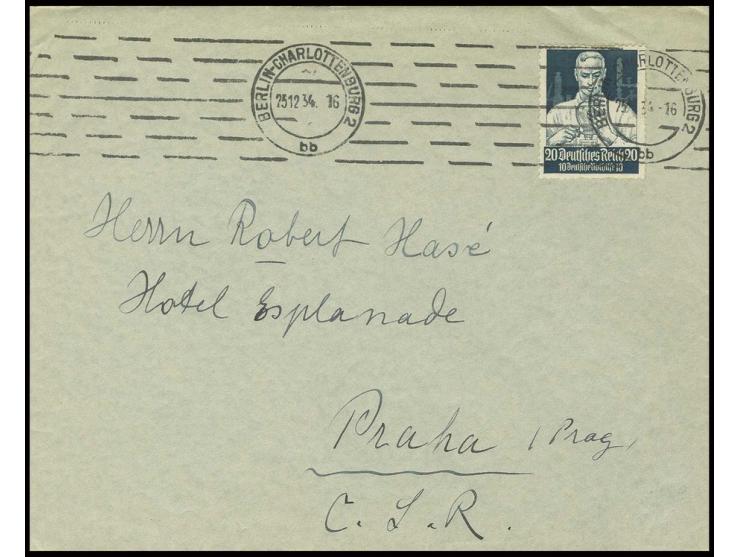 BERLIN-CHARLOTTENBURG 2
25.12.34. 16
bb
20 Deutsches Reich 20
10 Deutsche Nothilfe 10
Herrn Robert Hasé
Hotel Esplanade
Praha (Prag)
C. S. R.